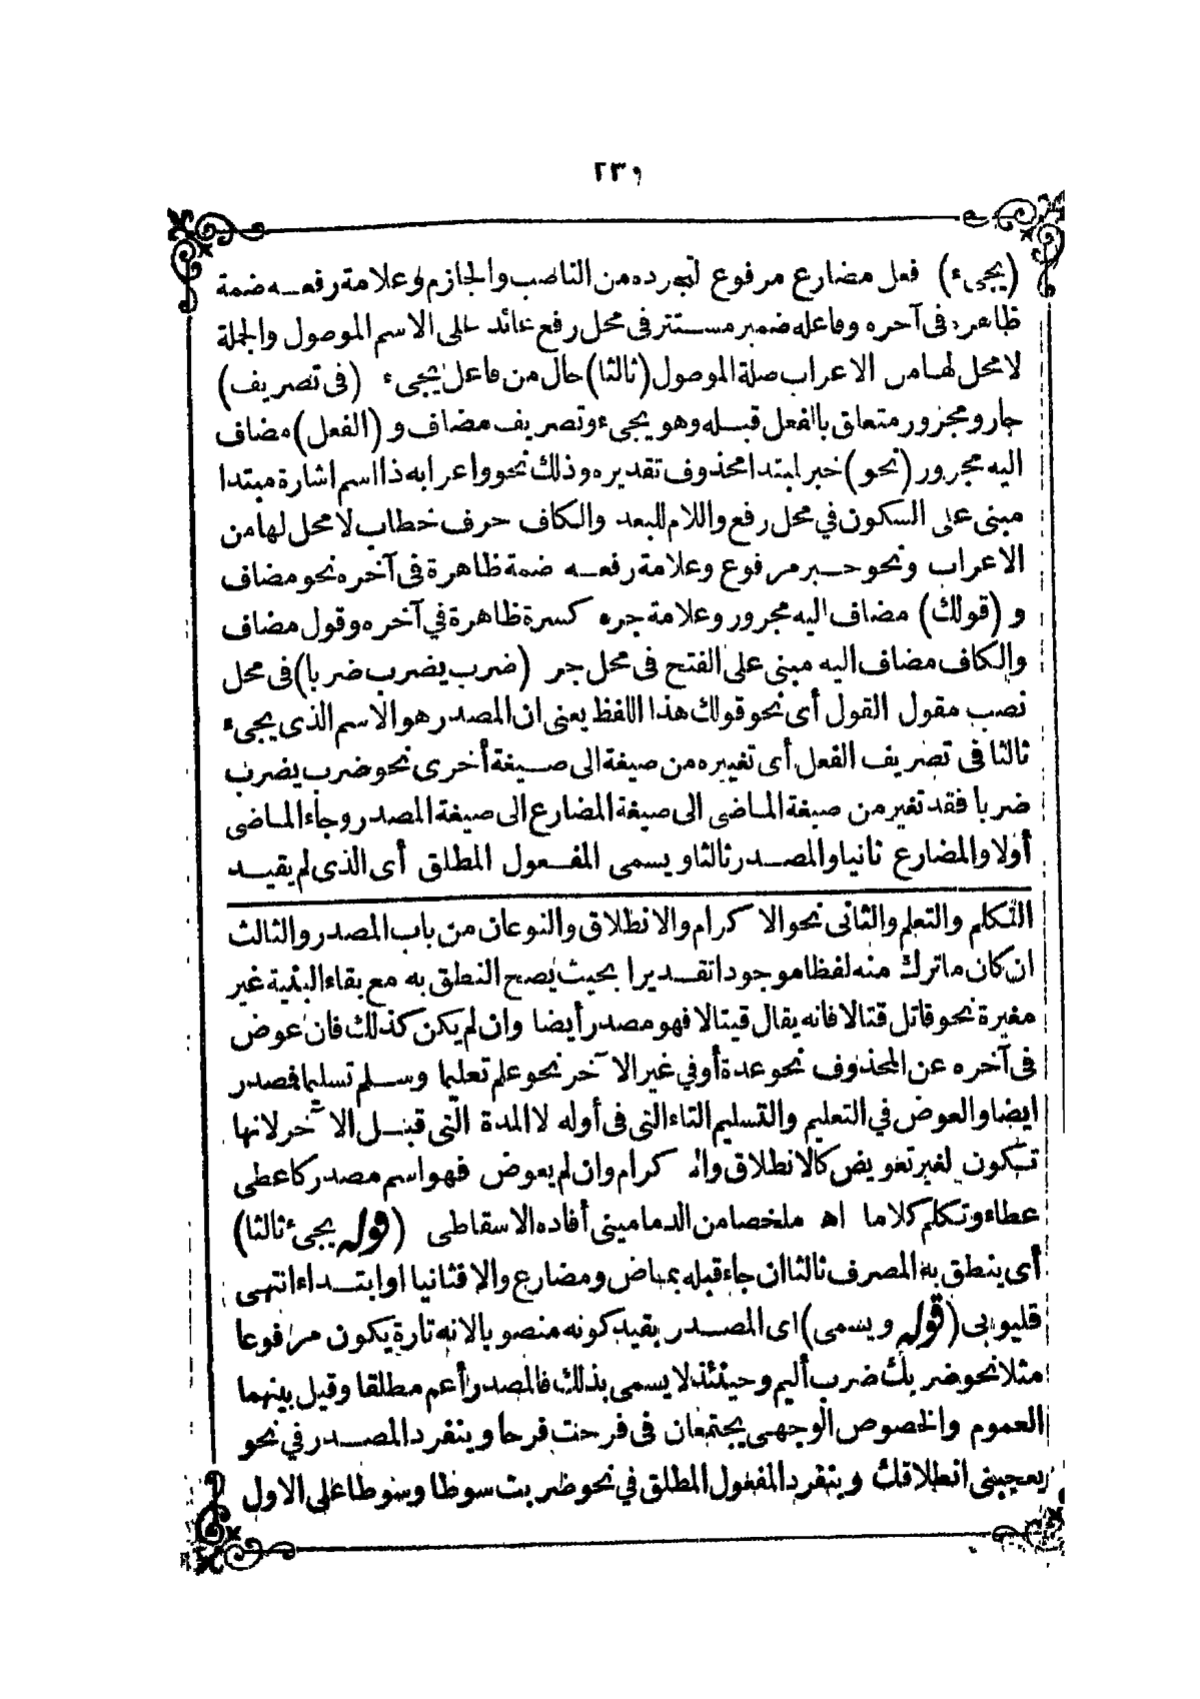 ٢٣٩
(يجىء) فعل مضارع مرفوع لتجرده من الناصب والجازم وعلامة رفعـه ضمة
ظاهرة فى آخره وفاعله ضمير مستتر فى محل رفع عائد على الاسم الموصول والجملة
لا محل لها من الاعراب صلة الموصول (ثالثا) حال من فاعل يجىء (فى تصريف)
جار ومجرور متعلق بالفعل قبله وهو يجىء وتصريف مضاف و (الفعل) مضاف
اليه مجرور (نحو) خبر لمبتدا محذوف تقديره وذلك نحو واعرابه ذا اسم اشارة مبتدا
مبنى على السكون في محل رفع واللام للبعد والكاف حرف خطاب لا محل لها من
الاعراب ونحو خبر مرفوع وعلامة رفعـه ضمة ظاهرة فى آخره نحو مضاف
و (قولك) مضاف اليه مجرور وعلامة جره كسرة ظاهرة في آخره وقول مضاف
والكاف مضاف اليه مبنى على الفتح فى محل جر (ضرب يضرب ضربا) فى محل
نصب مقول القول أى نحو قولك هذا اللفظ يعنى ان المصدر هو الاسم الذى يجىء
ثالثا فى تصريف الفعل أى تغييره من صيغة الى صيغة أخرى نحو ضرب يضرب
ضربا فقد تغير من صيغة الماضى الى صيغة المضارع الى صيغة المصدر وجاء الماضى
أولا والمضارع ثانيا والمصدر ثالثا ويسمى المفعول المطلق أى الذى لم يقيد
التكلم والتعلم والثانى نحو الاكرام والانطلاق والنوعان من باب المصدر والثالث
ان كان ما ترك منه لفظا موجودا تقديرا بحيث يصح النطق به مع بقاء البنية غير
مغيرة نحو قاتل قتالا فانه يقال قيتالا فهو مصدر أيضا وان لم يكن كذلك فان عوض
فى آخره عن المحذوف نحو عدة أو في غير الآخر نحو علم تعليما وسـلم تسليما فصدر
ايضا والعوض في التعليم والتسليم التاء التى فى أوله لا المدة التى قبـل الآخر لانها
تكون لغير تعويض كالانطلاق والاكرام وان لم يعوض فهو اسم مصدر كاعطى
عطاء وتكلم كلاما اه ملخصا من الدمامينى أفاده الاسقاطى (قوله يجىء ثالثا)
أى ينطق به المصرف ثالثا ان جاء قبله بماض ومضارع والا فثانيا او ابتـداء انتهى
قليوبى (قوله ويسمى) اى المصـدر بقيد كونه منصوبا لانه تارة يكون مرفوعا
مثلا نحو ضربك ضرب أليم وحينئذ لا يسمى بذلك فالمصدر أعم مطلقا وقيل بينهما
العموم والخصوص الوجهى يجتمعان فى فرحت فرحا وينفرد المصـدر في نحو
يعجبنى انطلاقك وينفرد المفعول المطلق في نحو ضربت سوطا وسوطا على الاول